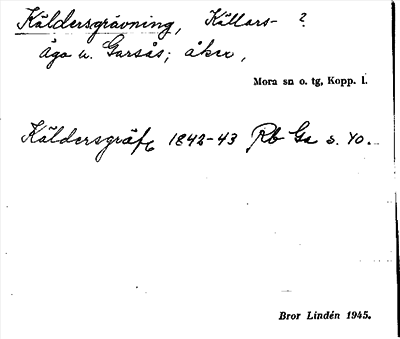 Käldersgrävning, Källars- ?
äga u. Garsås; åker,
Mora sn o. tg, Kopp. l.
Käldersgräf 1842-43 Rb Ga s. 40.
Bror Lindén 1945.